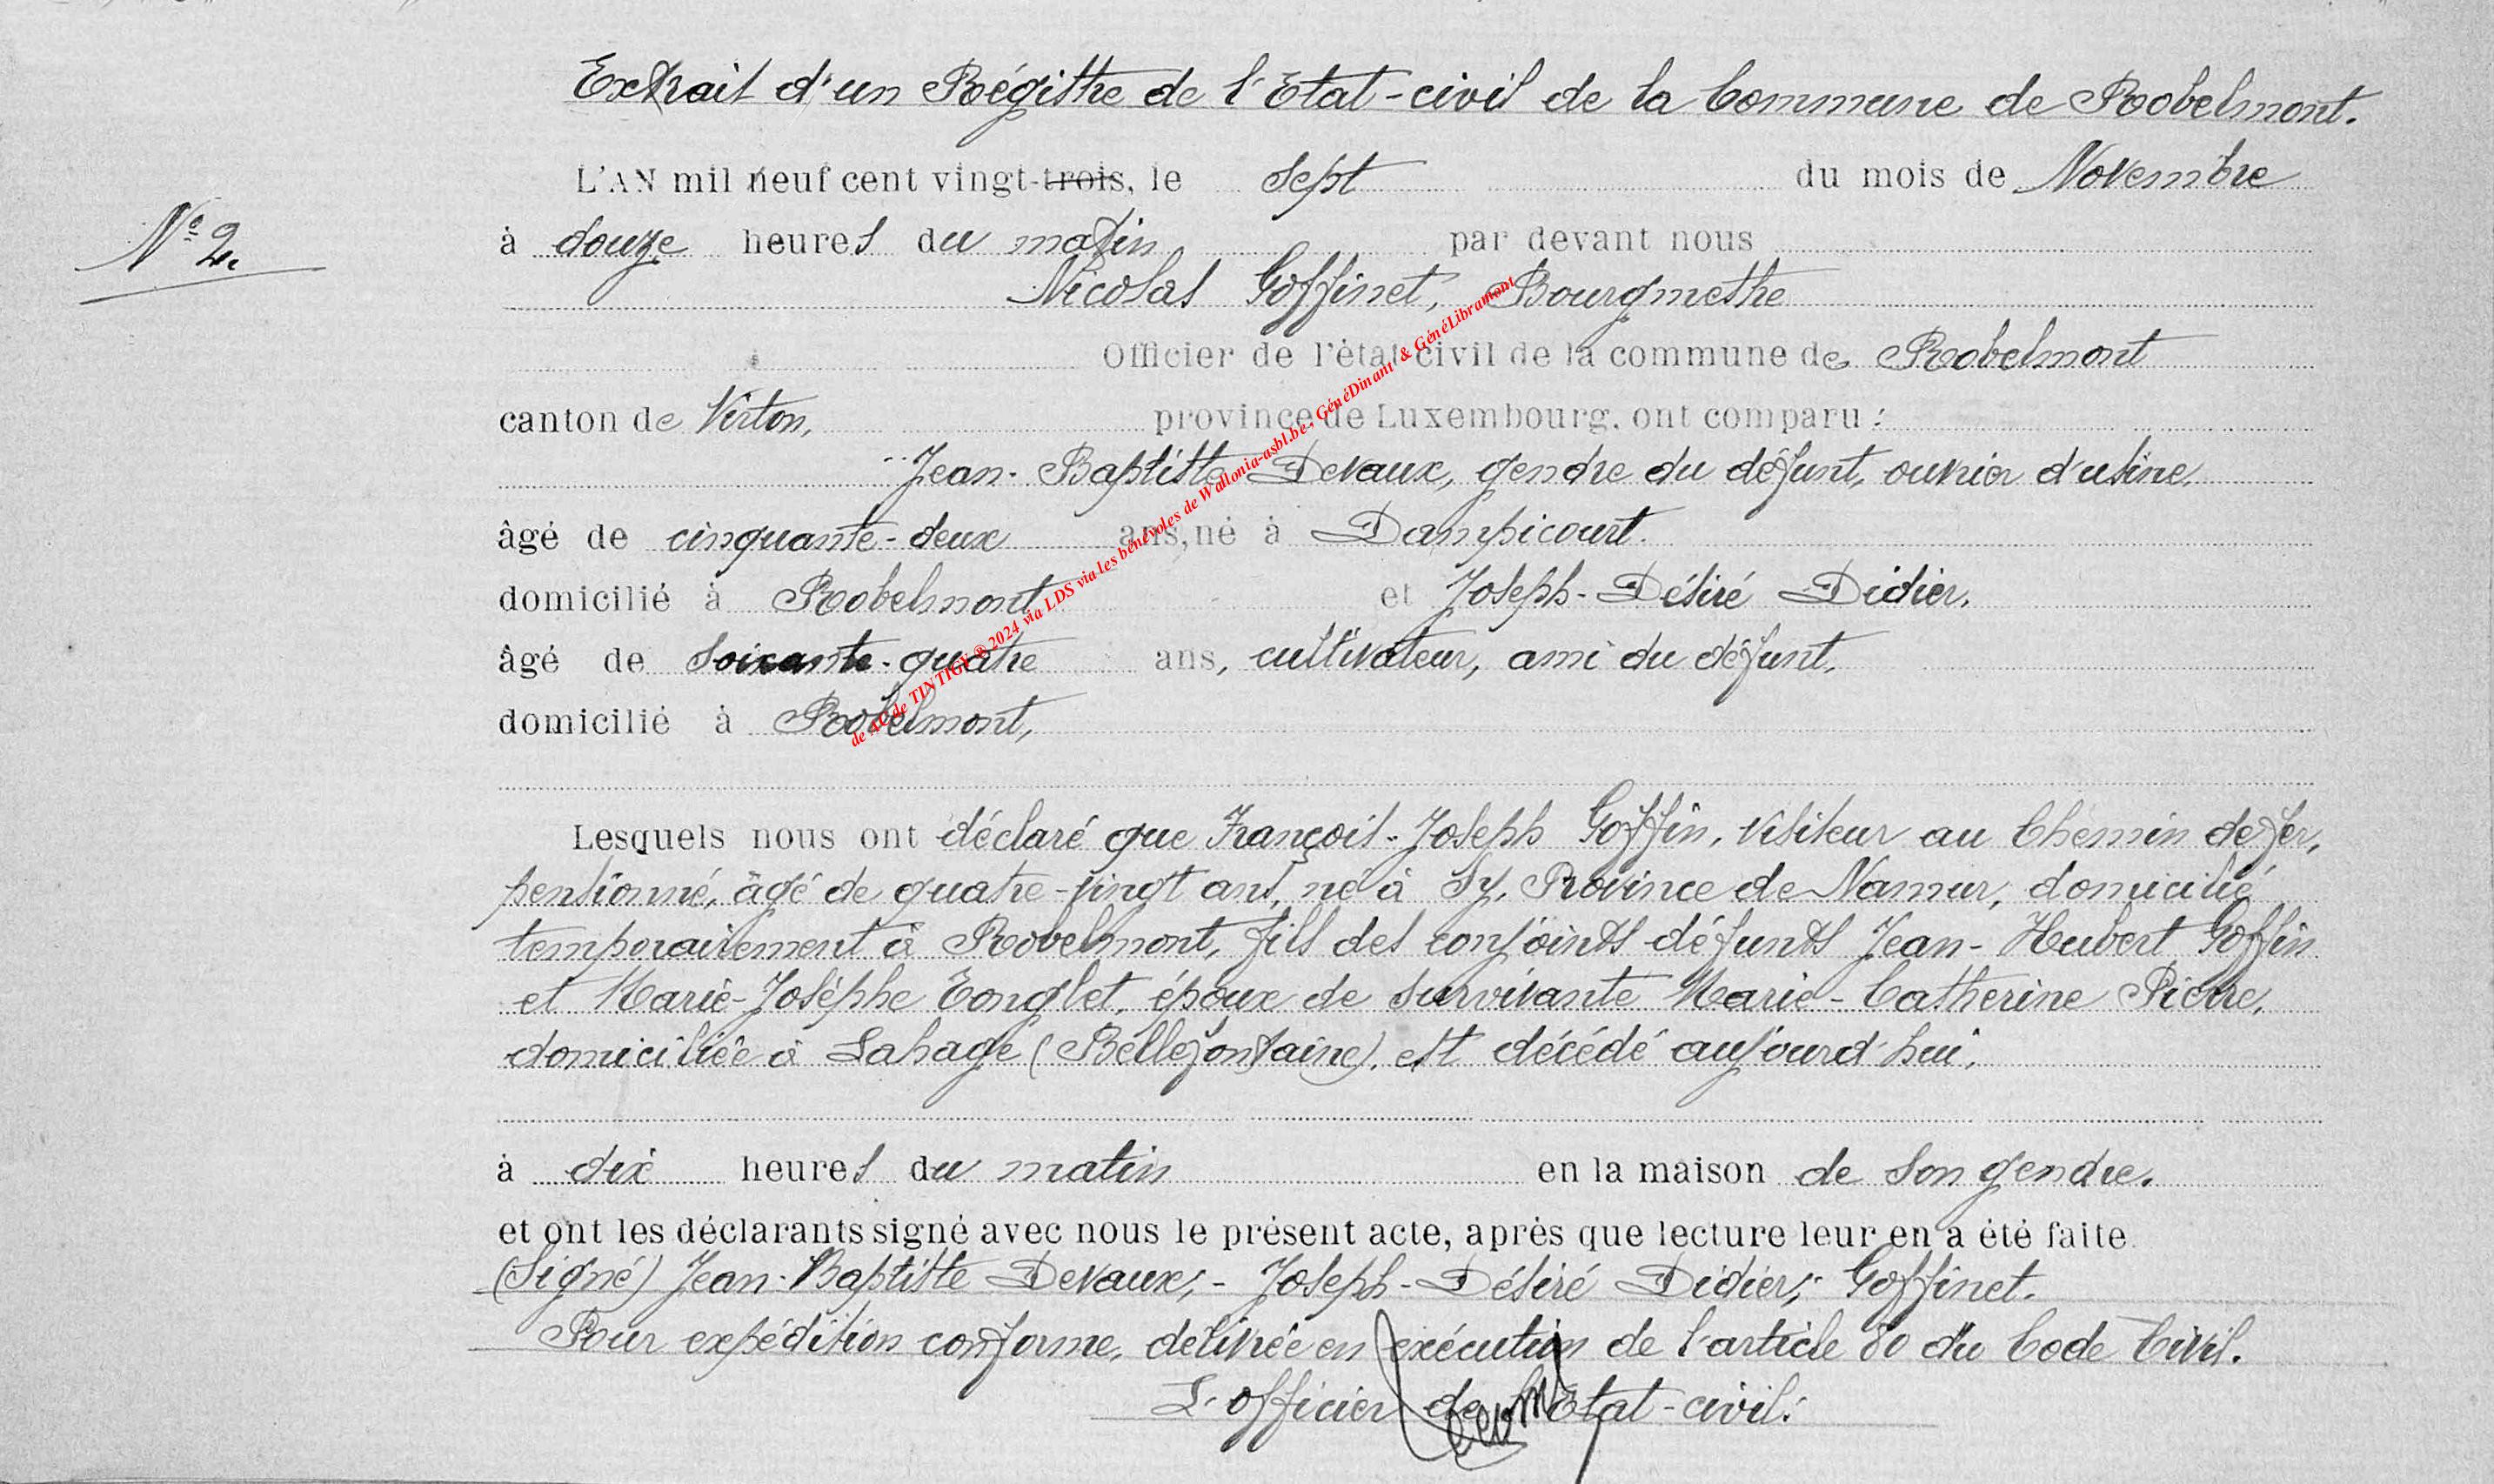 Extrait d'un Régistre de l'Etat-civil de la Commune de Robelmont.
L'AN mil neuf cent vingt-trois, le sept du mois de Novembre
N° 2.
à douze heures du matin par devant nous
Nicolas Goffinet, Bourgmestre
Officier de l'état civil de la commune de Robelmont
canton de Virton, province de Luxembourg, ont comparu :
Jean-Baptiste Devaux, gendre du défunt, ouvrier d'usine,
âgé de cinquante-deux ans, né à Dampicourt.
domicilié à Robelmont et Joseph-Désiré Didier,
âgé de soixante-quatre ans, cultivateur, ami du défunt,
domicilié à Robelmont,
de AC de TINTIGNY @ 2024 via LDS via les bénévoles de Wallonia-asbl.be , GénéDinant & GénéLibramont
Lesquels nous ont déclaré que François-Joseph Goffin, visiteur au Chemin de fer,
pensionné, âgé de quatre-vingt ans, né à Sy, Province de Namur, domicilié
temporairement à Robelmont, fils des conjoints défunts Jean-Hubert Goffin
et Marie-Josèphe Tonglet, époux de survivante Marie-Catherine Pierre,
domiciliée à Lahage (Bellefontaine), est décédé aujourd'hui,
à dix heures du matin en la maison de son gendre.
et ont les déclarants signé avec nous le présent acte, après que lecture leur en a été faite
(Signé) Jean-Baptiste Devaux,- Joseph-Désiré Didier,- Goffinet.
Pour expédition conforme, délivrée en exécution de l'article 80 du Code Civil.
L'officier de l'Etat-civil: